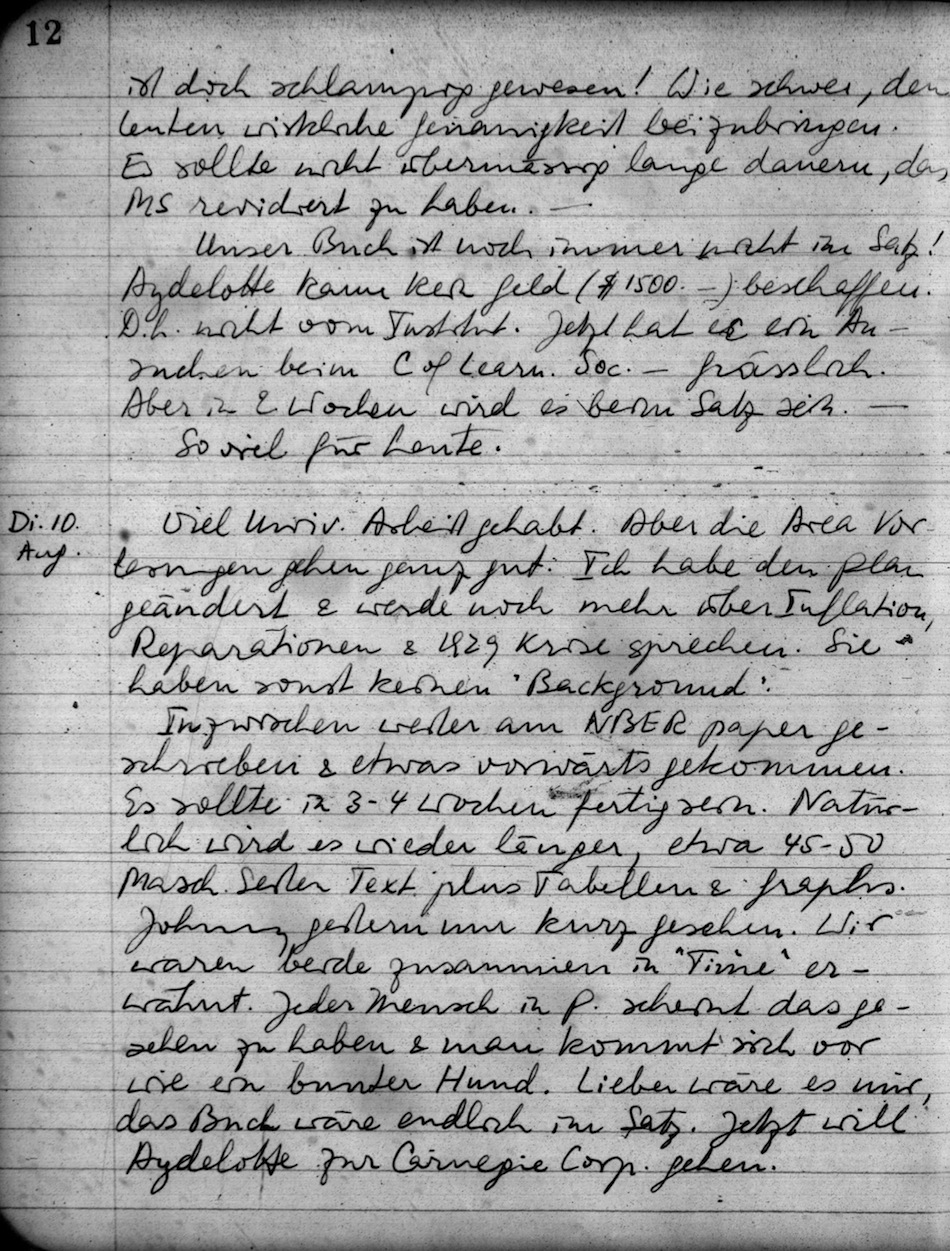 12
ist doch schlampig gewesen! Wie schwer, den
Leuten wirkliche Genauigkeit beizubringen.
Es sollte nicht übermässig lange dauern, das
MS revidiert zu haben. —
Unser Buch ist noch immer nicht im Satz!
Aydelotte kann kein Geld ($1500.—) beschaffen.
D.h. nicht vom Institut. Jetzt hat er ein An-
suchen beim C of Learn. Soc. — grässlich.
Aber in 2 Wochen wird es beim Satz sein. —
So viel für heute.
Di. 10.
Aug.
Viel Univ. Arbeit gehabt. Aber die Area Vor-
lesungen gehen ganz gut. Ich habe den Plan
geändert & werde noch mehr über Inflation,
Reparationen & 1929 Krise sprechen. Sie
haben sonst keinen 'Background'.
Inzwischen weiter am NBER paper ge-
schrieben & etwas vorwärts gekommen.
Es sollte in 3-4 Wochen fertig sein. Natür-
lich wird es wieder länger, etwa 45-50
Masch. Seiten Text plus Tabellen & Graphs.
Johnny gestern nur kurz gesehen. Wir
waren beide zusammen in "Time" er-
wähnt. Jeder Mensch in P. scheint das ge-
sehen zu haben & man kommt sich vor
wie ein bunter Hund. Lieber wäre es mir,
das Buch wäre endlich im Satz. Jetzt will
Aydelotte zur Carnegie Corp. gehen.